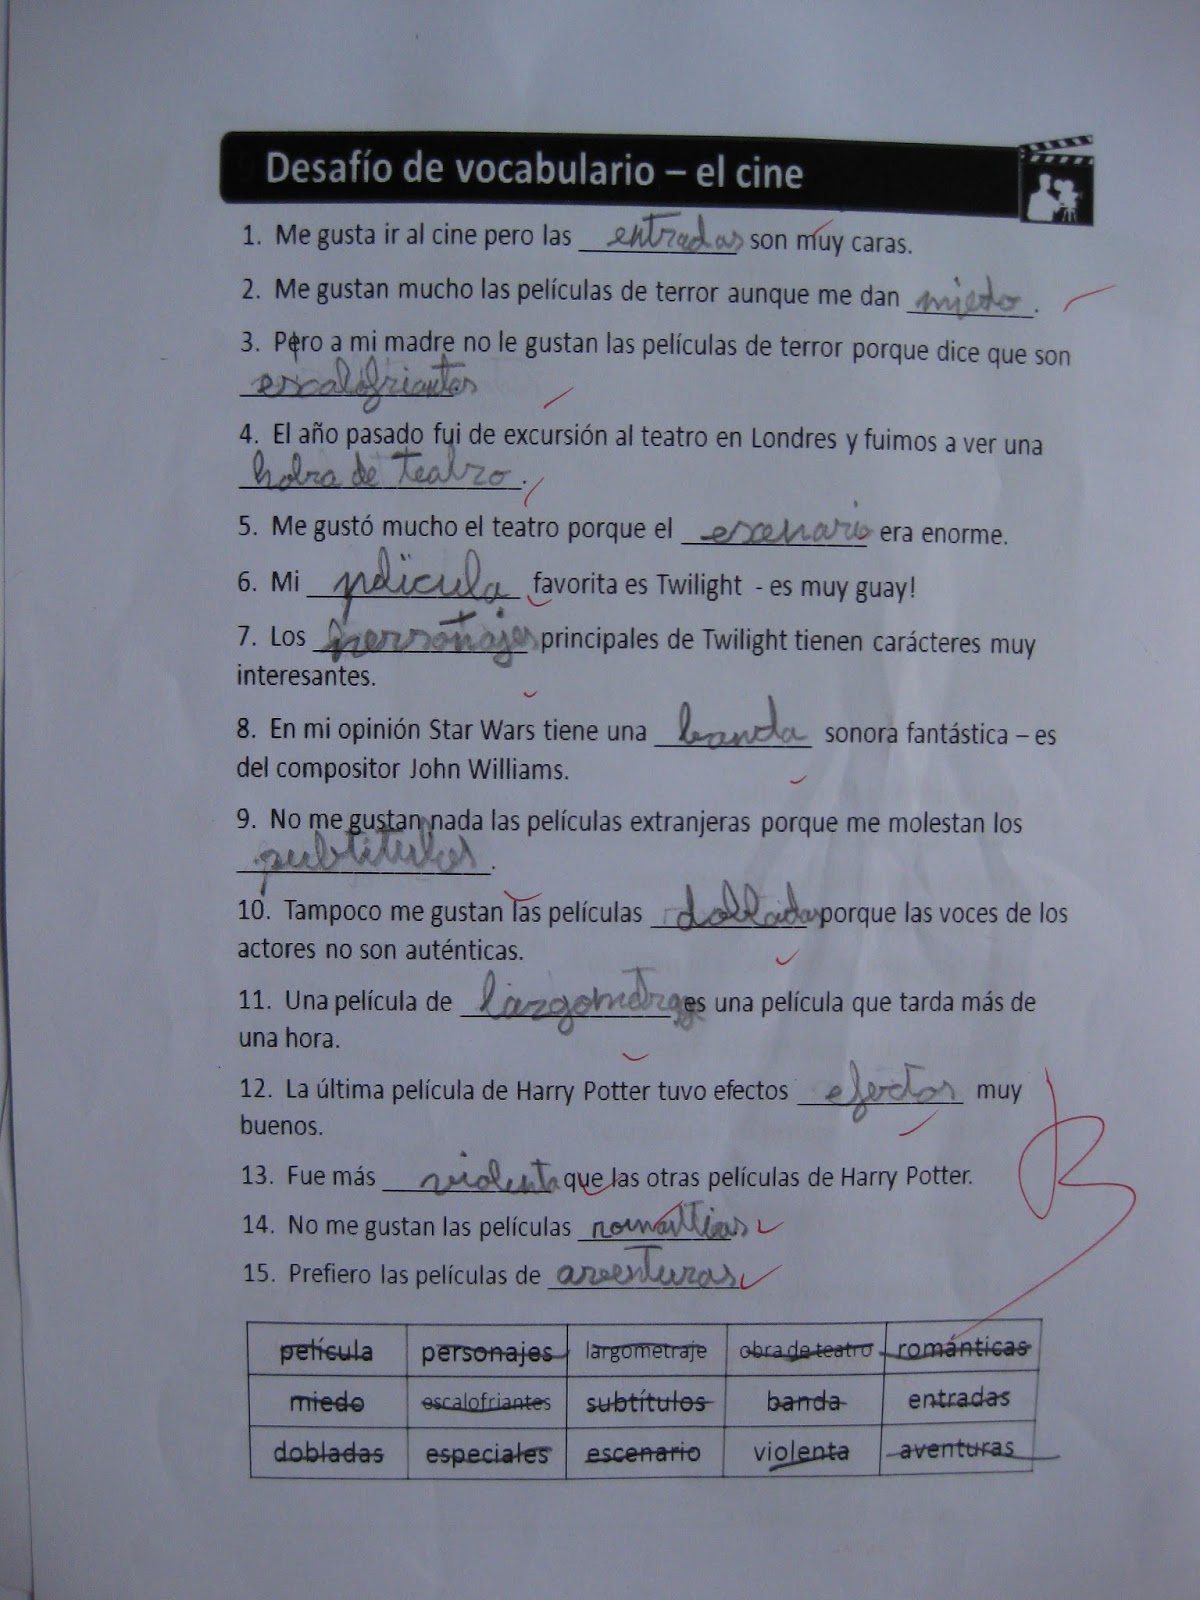 Desafío de vocabulario – el cine
1. Me gusta ir al cine pero las entradas son muy caras.
2. Me gustan mucho las películas de terror aunque me dan miedo.
3. Pero a mi madre no le gustan las películas de terror porque dice que son
escalofriantes
4. El año pasado fui de excursión al teatro en Londres y fuimos a ver una
hobra de teatro.
5. Me gustó mucho el teatro porque el escenario era enorme.
6. Mi película favorita es Twilight - es muy guay!
7. Los personajes principales de Twilight tienen carácteres muy
interesantes.
8. En mi opinión Star Wars tiene una banda sonora fantástica – es
del compositor John Williams.
9. No me gustan nada las películas extranjeras porque me molestan los
subtitulos.
10. Tampoco me gustan las películas dobladas porque las voces de los
actores no son auténticas.
11. Una película de largometraje es una película que tarda más de
una hora.
12. La última película de Harry Potter tuvo efectos efectos muy
buenos.
13. Fue más violenta que las otras películas de Harry Potter.
14. No me gustan las películas
15. Prefiero las películas de aventuras
película personajes largometraje obra de teatro románticas
miedo escalofriantes subtítulos banda entradas
dobladas especiales escenario violenta aventuras